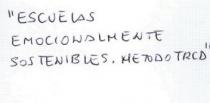 "ESCUELAS
EMOCIONALMENTE
SOSTENIBLES. METODO TRCD"